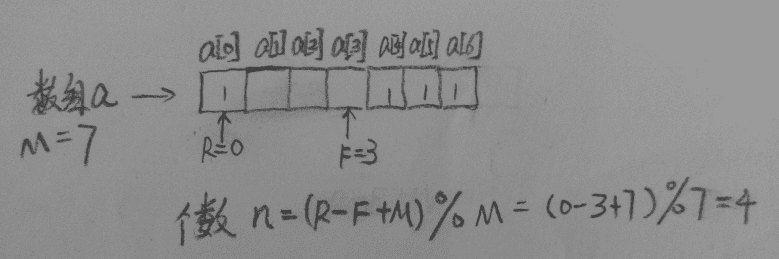 a[0] a[1] a[2] a[3] a[4] a[5] a[6]
数组a → 1 1 1 1
M=7
R=0 F=3
个数 n=(R-F+M)%M=(0-3+7)%7=4